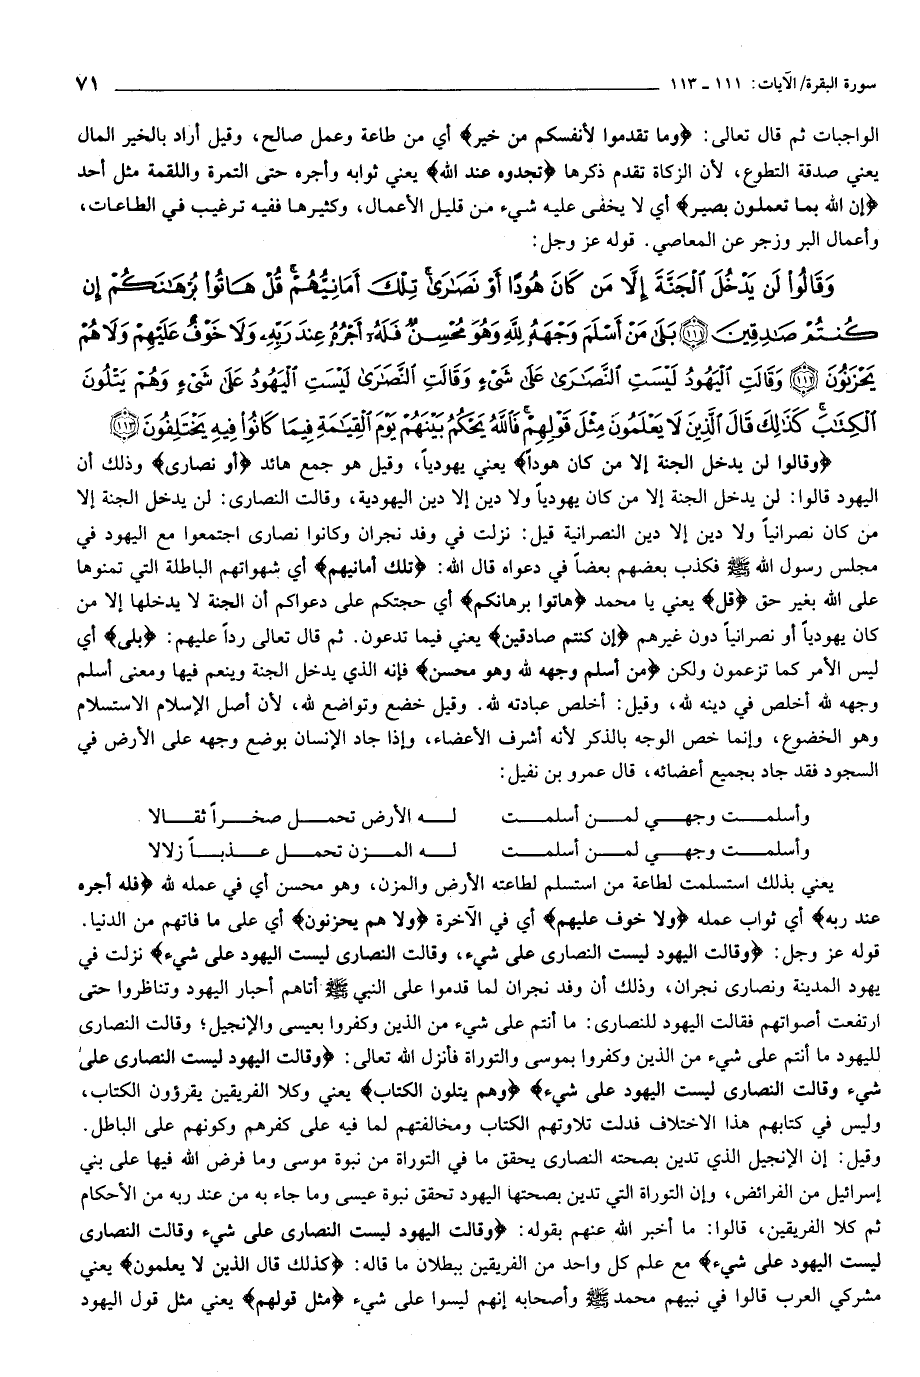 سورة البقرة/ الآيات: ١١١ ـ ١١٣ ٧١
الواجبات ثم قال تعالى: ﴿وما تقدموا لأنفسكم من خير﴾ أي من طاعة وعمل صالح، وقيل أراد بالخير المال
يعني صدقة التطوع، لأن الزكاة تقدم ذكرها ﴿تجدوه عند الله﴾ يعني ثوابه وأجره حتى التمرة واللقمة مثل أحد
﴿إن الله بما تعملون بصير﴾ أي لا يخفى عليه شيء من قليل الأعمال، وكثيرها ففيه ترغيب في الطاعات،
وأعمال البر وزجر عن المعاصي. قوله عز وجل:
وَقَالُواْ لَن يَدْخُلَ ٱلْجَنَّةَ إِلَّا مَن كَانَ هُودًا أَوْ نَصَٰرَىٰ ۗ تِلْكَ أَمَانِيُّهُمْ ۗ قُلْ هَاتُواْ بُرْهَٰنَكُمْ إِن
كُنتُمْ صَٰدِقِينَ ﴿١١١﴾ بَلَىٰ مَنْ أَسْلَمَ وَجْهَهُۥ لِلَّهِ وَهُوَ مُحْسِنٌ فَلَهُۥٓ أَجْرُهُۥ عِندَ رَبِّهِۦ وَلَا خَوْفٌ عَلَيْهِمْ وَلَا هُمْ
يَحْزَنُونَ ﴿١١٢﴾ وَقَالَتِ ٱلْيَهُودُ لَيْسَتِ ٱلنَّصَٰرَىٰ عَلَىٰ شَيْءٍ وَقَالَتِ ٱلنَّصَٰرَىٰ لَيْسَتِ ٱلْيَهُودُ عَلَىٰ شَيْءٍ وَهُمْ يَتْلُونَ
ٱلْكِتَٰبَ ۗ كَذَٰلِكَ قَالَ ٱلَّذِينَ لَا يَعْلَمُونَ مِثْلَ قَوْلِهِمْ ۚ فَٱللَّهُ يَحْكُمُ بَيْنَهُمْ يَوْمَ ٱلْقِيَٰمَةِ فِيمَا كَانُواْ فِيهِ يَخْتَلِفُونَ ﴿١١٣﴾
﴿وقالوا لن يدخل الجنة إلا من كان هوداً﴾ يعني يهودياً، وقيل هو جمع هائد ﴿أو نصارى﴾ وذلك أن
اليهود قالوا: لن يدخل الجنة إلا من كان يهودياً ولا دين إلا دين اليهودية، وقالت النصارى: لن يدخل الجنة إلا
من كان نصرانياً ولا دين إلا دين النصرانية قيل: نزلت في وفد نجران وكانوا نصارى اجتمعوا مع اليهود في
مجلس رسول الله ﷺ فكذب بعضهم بعضاً في دعواه قال الله: ﴿تلك أمانيهم﴾ أي شهواتهم الباطلة التي تمنوها
على الله بغير حق ﴿قل﴾ يعني يا محمد ﴿هاتوا برهانكم﴾ أي حجتكم على دعواكم أن الجنة لا يدخلها إلا من
كان يهودياً أو نصرانياً دون غيرهم ﴿إن كنتم صادقين﴾ يعني فيما تدعون. ثم قال تعالى رداً عليهم: ﴿بلى﴾ أي
ليس الأمر كما تزعمون ولكن ﴿من أسلم وجهه لله وهو محسن﴾ فإنه الذي يدخل الجنة وينعم فيها ومعنى أسلم
وجهه لله أخلص في دينه لله، وقيل: أخلص عبادته لله. وقيل خضع وتواضع لله، لأن أصل الإسلام الاستسلام
وهو الخضوع، وإنما خص الوجه بالذكر لأنه أشرف الأعضاء، وإذا جاد الإنسان بوضع وجهه على الأرض في
السجود فقد جاد بجميع أعضائه، قال عمرو بن نفيل:
وأسلمـت وجهـي لمـن أسلمـت لـه الأرض تحمـل صخـراً ثقـالا
وأسلمـت وجهـي لمـن أسلمـت لـه المـزن تحمـل عـذبـاً زلالا
يعني بذلك استسلمت لطاعة من استسلم لطاعته الأرض والمزن، وهو محسن أي في عمله لله ﴿فله أجره
عند ربه﴾ أي ثواب عمله ﴿ولا خوف عليهم﴾ أي في الآخرة ﴿ولا هم يحزنون﴾ أي على ما فاتهم من الدنيا.
قوله عز وجل: ﴿وقالت اليهود ليست النصارى على شيء، وقالت النصارى ليست اليهود على شيء﴾ نزلت في
يهود المدينة ونصارى نجران، وذلك أن وفد نجران لما قدموا على النبي ﷺ أتاهم أحبار اليهود وتناظروا حتى
ارتفعت أصواتهم فقالت اليهود للنصارى: ما أنتم على شيء من الذين وكفروا بعيسى والإنجيل؛ وقالت النصارى
لليهود ما أنتم على شيء من الذين وكفروا بموسى والتوراة فأنزل الله تعالى: ﴿وقالت اليهود ليست النصارى على
شيء وقالت النصارى ليست اليهود على شيء﴾ ﴿وهم يتلون الكتاب﴾ يعني وكلا الفريقين يقرؤون الكتاب،
وليس في كتابهم هذا الاختلاف فدلت تلاوتهم الكتاب ومخالفتهم لما فيه على كفرهم وكونهم على الباطل.
وقيل: إن الإنجيل الذي تدين بصحته النصارى يحقق ما في التوراة من نبوة موسى وما فرض الله فيها على بني
إسرائيل من الفرائض، وإن التوراة التي تدين بصحتها اليهود تحقق نبوة عيسى وما جاء به من عند ربه من الأحكام
ثم كلا الفريقين، قالوا: ما أخبر الله عنهم بقوله: ﴿وقالت اليهود ليست النصارى على شيء وقالت النصارى
ليست اليهود على شيء﴾ مع علم كل واحد من الفريقين ببطلان ما قاله: ﴿كذلك قال الذين لا يعلمون﴾ يعني
مشركي العرب قالوا في نبيهم محمد ﷺ وأصحابه إنهم ليسوا على شيء ﴿مثل قولهم﴾ يعني مثل قول اليهود